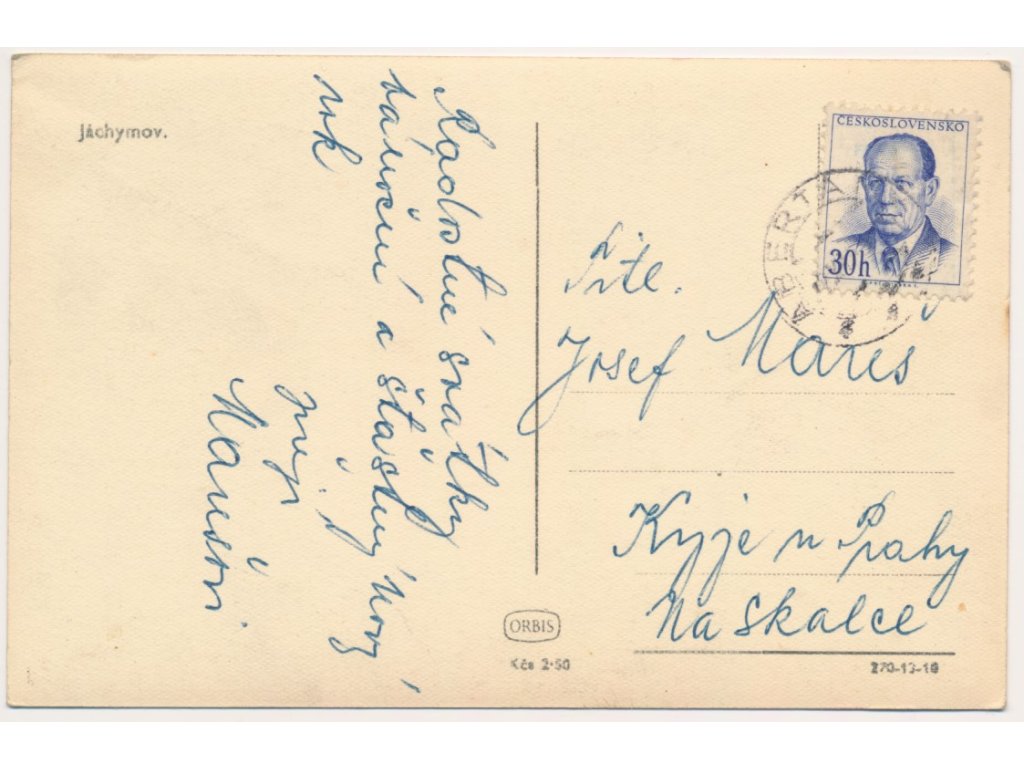 Jáchymov.
Radostné svátky
vánoční a šťastný nový
rok
přejí
Marešovi
ČESKOSLOVENSKO
30h
ABERTY
Tit.
Josef Mareš
Kyje u Prahy
Na Skalce
ORBIS
Kčs 2·50
270-13-10